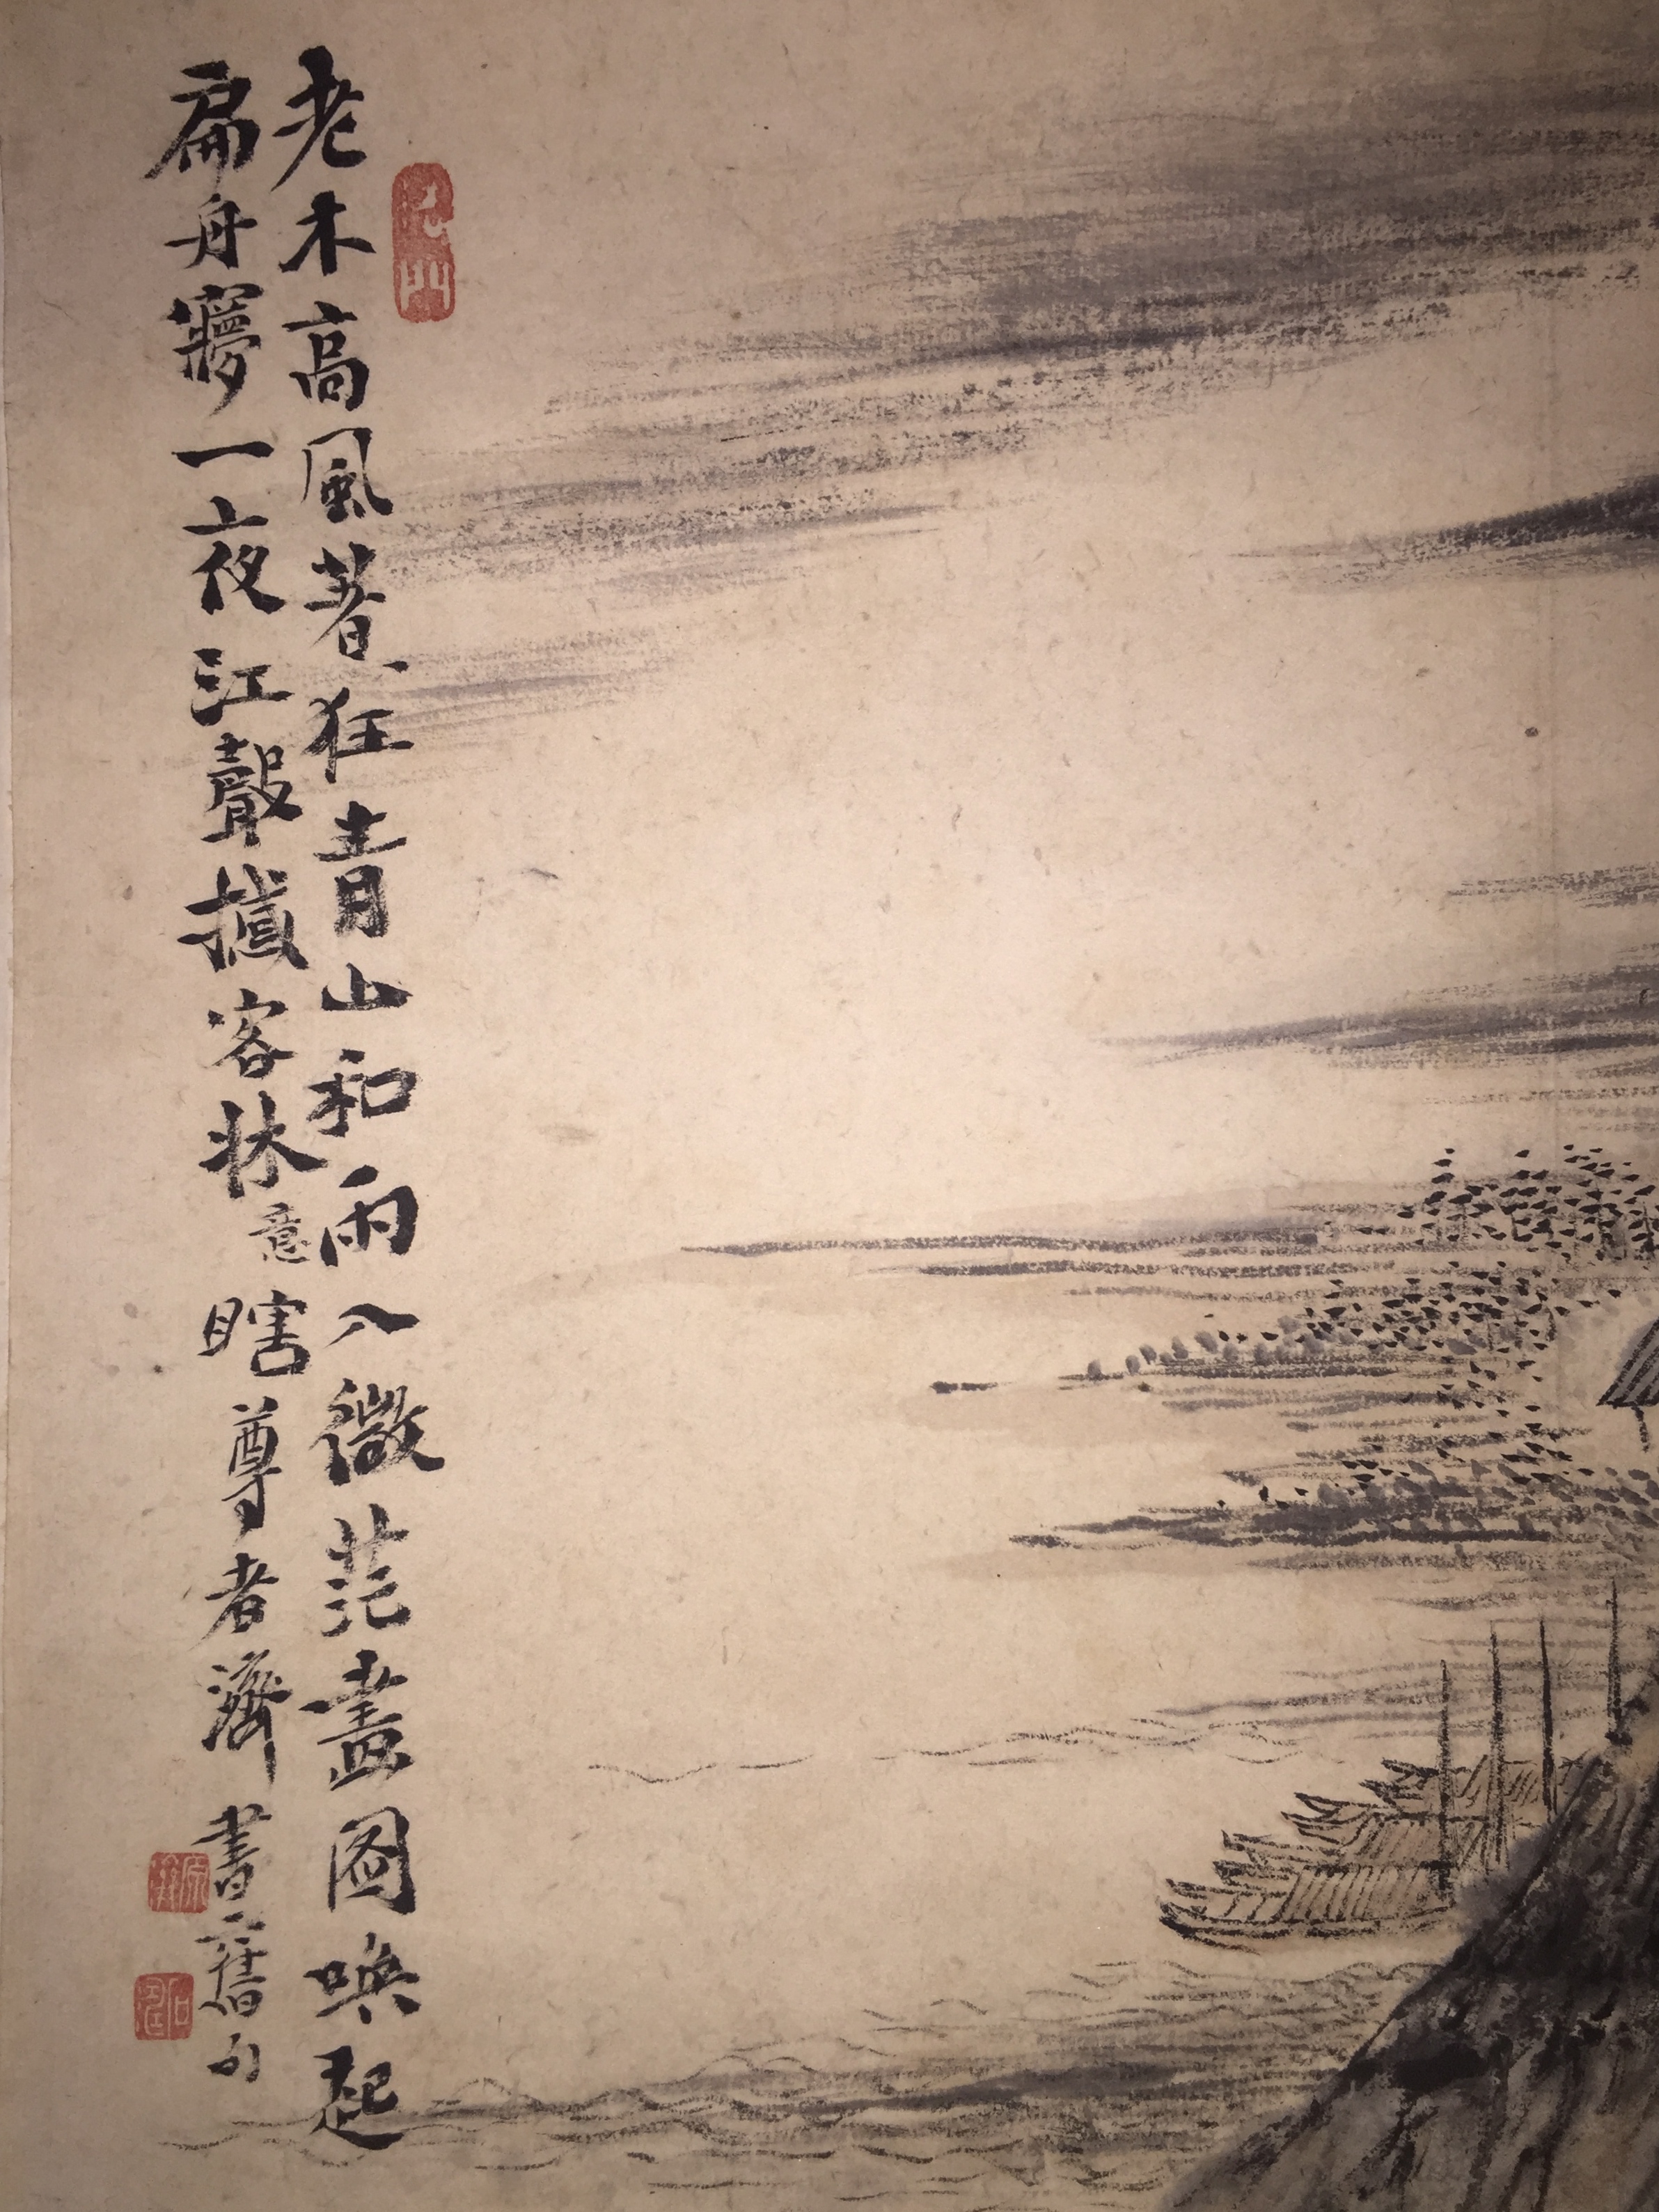 老木高風著狂青山和雨入微茫畫圖喚起
扁舟夢一夜江聲撼客牀意瞎尊者濟畫一舊句